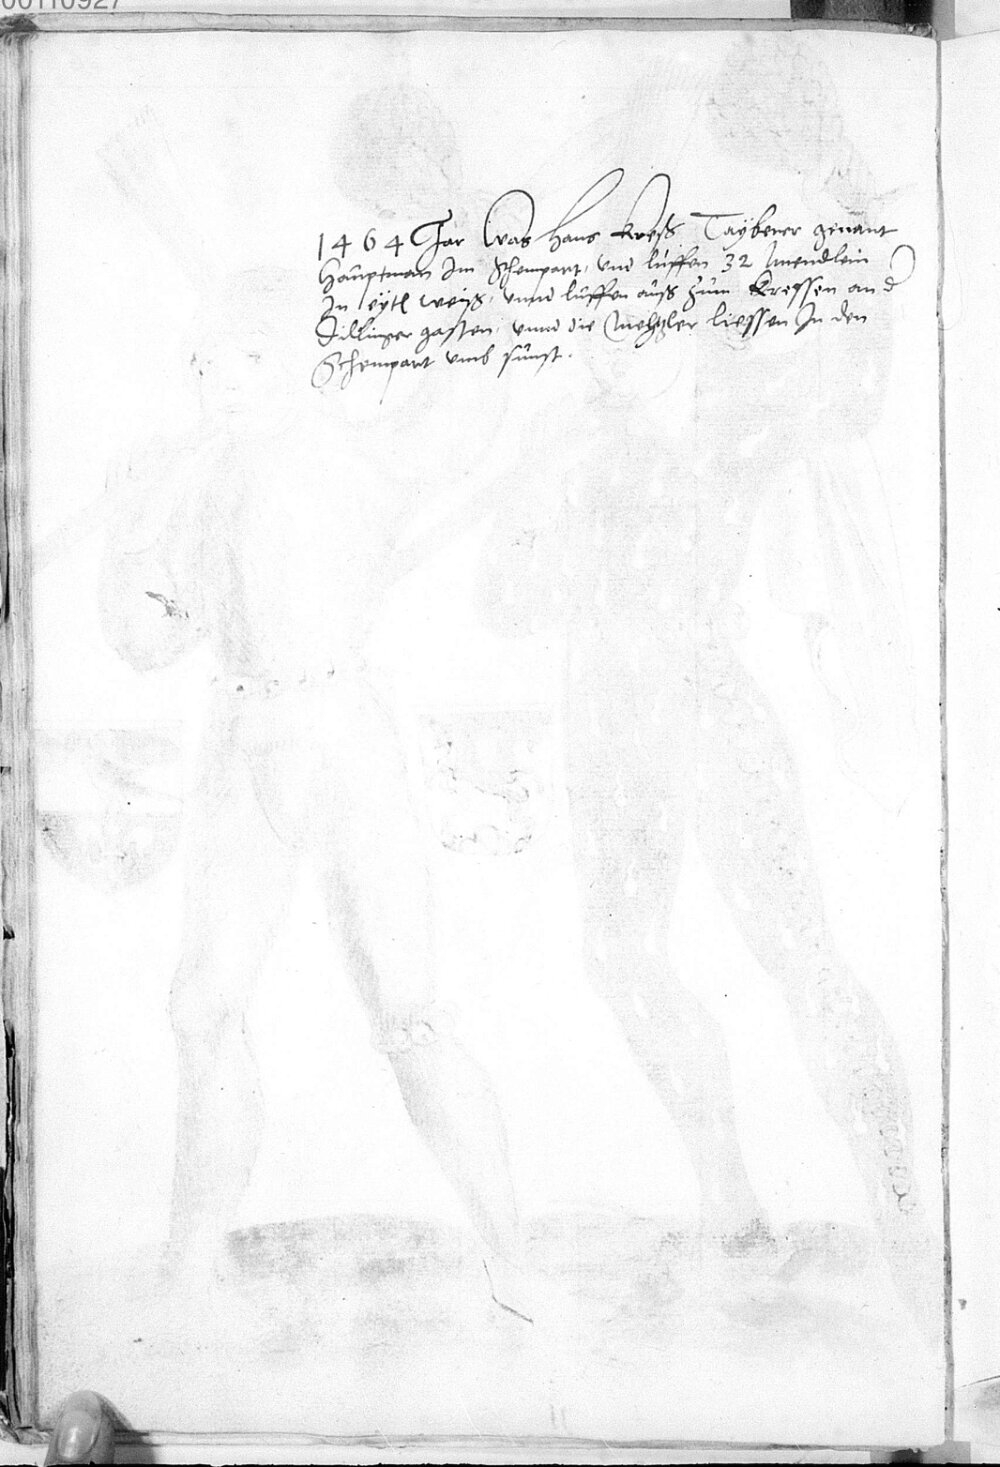 00110927
1464 Jar was Hans Kress Tayberer genant
Hauptman Im Schempart, vnd luffen 32 Mendlein
In eytl weiss, vnnd luffen auss zum Kressen an d
Dillinger gassen, vnnd die Metzgler liessen In den
Schempart vmb sunst.